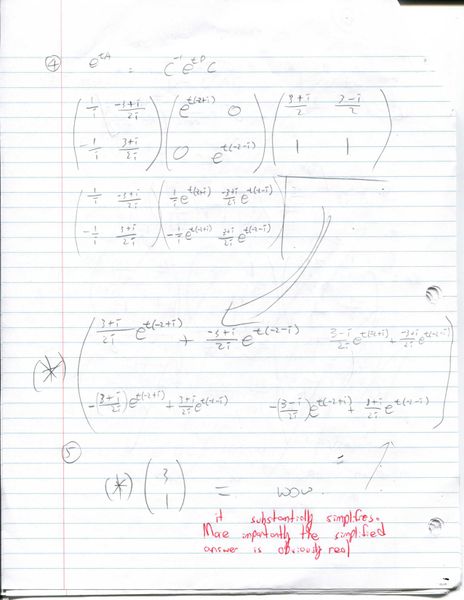 ④ e^{tA} = C^{-1} e^{tD} C
( 1/i (-3+i)/2i ; -1/i (3+i)/2i ) ( e^{t(-2+i)} 0 ; 0 e^{t(-2-i)} ) ( (3+i)/2 (3-i)/2 ; 1 1 )
( 1/i (-3+i)/2i ; -1/i (3+i)/2i ) ( 1/i e^{t(-2+i)} (-3+i)/2i e^{t(-2-i)} ; -1/i e^{t(-2+i)} (3+i)/2i e^{t(-2-i)} )
(3+i)/2i e^{t(-2+i)} + (-3+i)/2i e^{t(-2-i)} (3-i)/2i e^{t(-2+i)} + (-3+i)/2i e^{t(-2-i)}
(*)
-((3+i)/2i) e^{t(-2+i)} + (3+i)/2i e^{t(-2-i)} -((3-i)/2i) e^{t(-2+i)} + (3+i)/2i e^{t(-2-i)}
=
⑤ (*) ( 3 ; 1 ) = wow.
it substantially simplifies.
More importantly the simplified
answer is obviously real